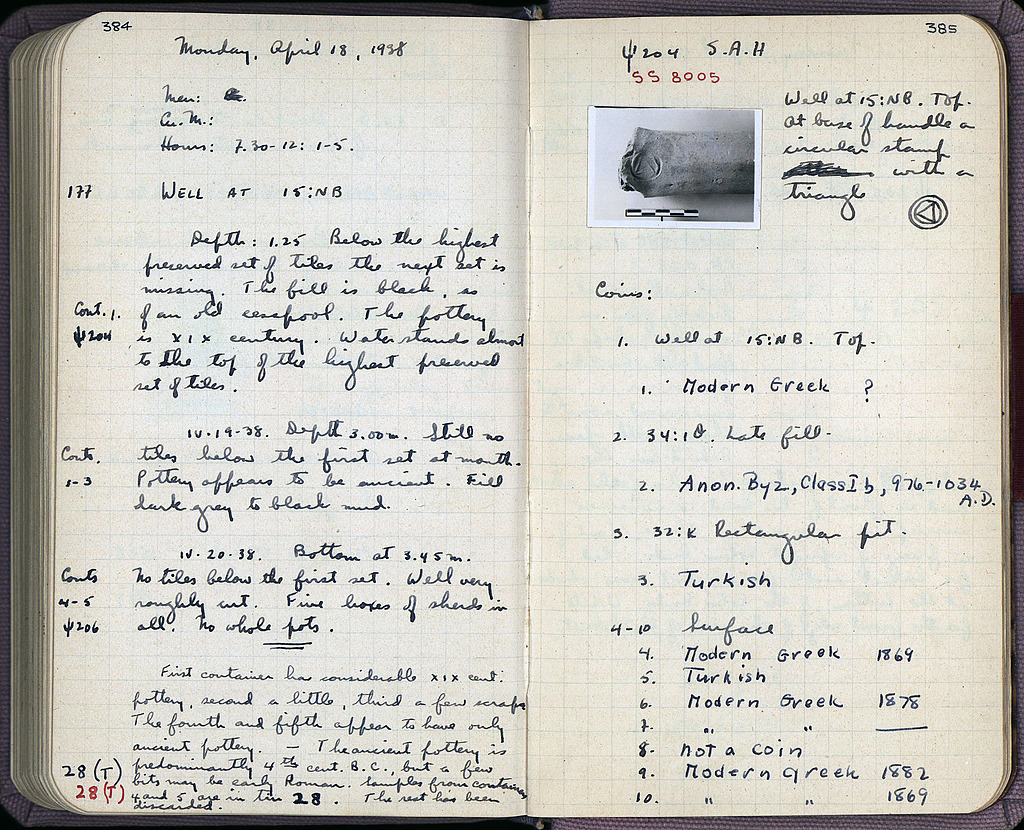 384
Monday, April 18, 1938
Men:
Cu. M.:
Hours: 7.30-12: 1-5.
177 WELL AT 15:NB
Depth: 1.25 Below the highest
preserved set of tiles the next set is
missing. The fill is black, as
Cont. 1. of an old cesspool. The pottery
ψ204 is XIX century. Water stands almost
to the top of the highest preserved
set of tiles.
IV-19-38. Depth 3.00 m. Still no
Conts. tiles below the first set at mouth.
1-3 Pottery appears to be ancient. Fill
dark grey to black mud.
IV-20-38. Bottom at 3.45 m.
Conts No tiles below the first set. Well very
4-5 roughly cut. Five boxes of sherds in
ψ206 all. No whole pots.
First container has considerable XIX cent.
pottery, second a little, third a few scraps
The fourth and fifth appear to have only
ancient pottery. — The ancient pottery is
28 (T) predominantly 4th cent. B.C., but a few
28 (T) bits may be early Roman. Samples from containers
4 and 5 are in tin 28. The rest has been
discarded.
385
ψ204 S.A.H
SS 8005
Well at 15:NB. Top.
At base of handle a
circular stamp
with a
triangle
Coins:
1. Well at 15:NB. Top.
1. Modern Greek ?
2. 34:ΙΘ. Late fill.
2. Anon. Byz, Class I b, 976-1034
A.D.
3. 32:K Rectangular pit.
3. Turkish
4-10 Surface
4. Modern Greek 1869
5. Turkish
6. Modern Greek 1878
7. " " —
8. Not a coin
9. Modern Greek 1882
10. " " 1869